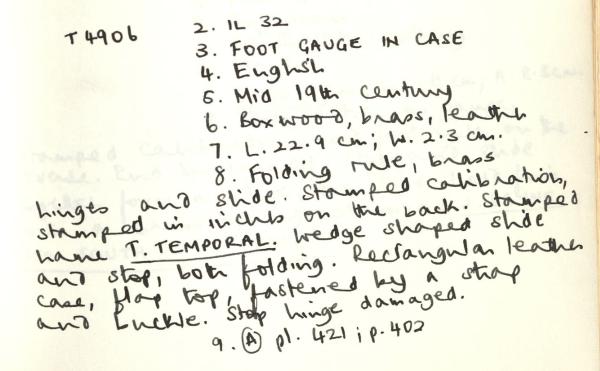 T4906
2. IL 32
3. FOOT GAUGE IN CASE
4. English
5. Mid 19th century
6. Boxwood, brass, leather
7. L. 22.9 cm; W. 2.3 cm.
8. Folding rule, brass
hinges and slide. Stamped calibration,
stamped in inches on the back. Stamped
name T. TEMPORAL. Wedge shaped slide
and stop, both folding. Rectangular leather
case, flap top, fastened by a strap
and buckle. Stop hinge damaged.
9. A pl. 421; p. 402